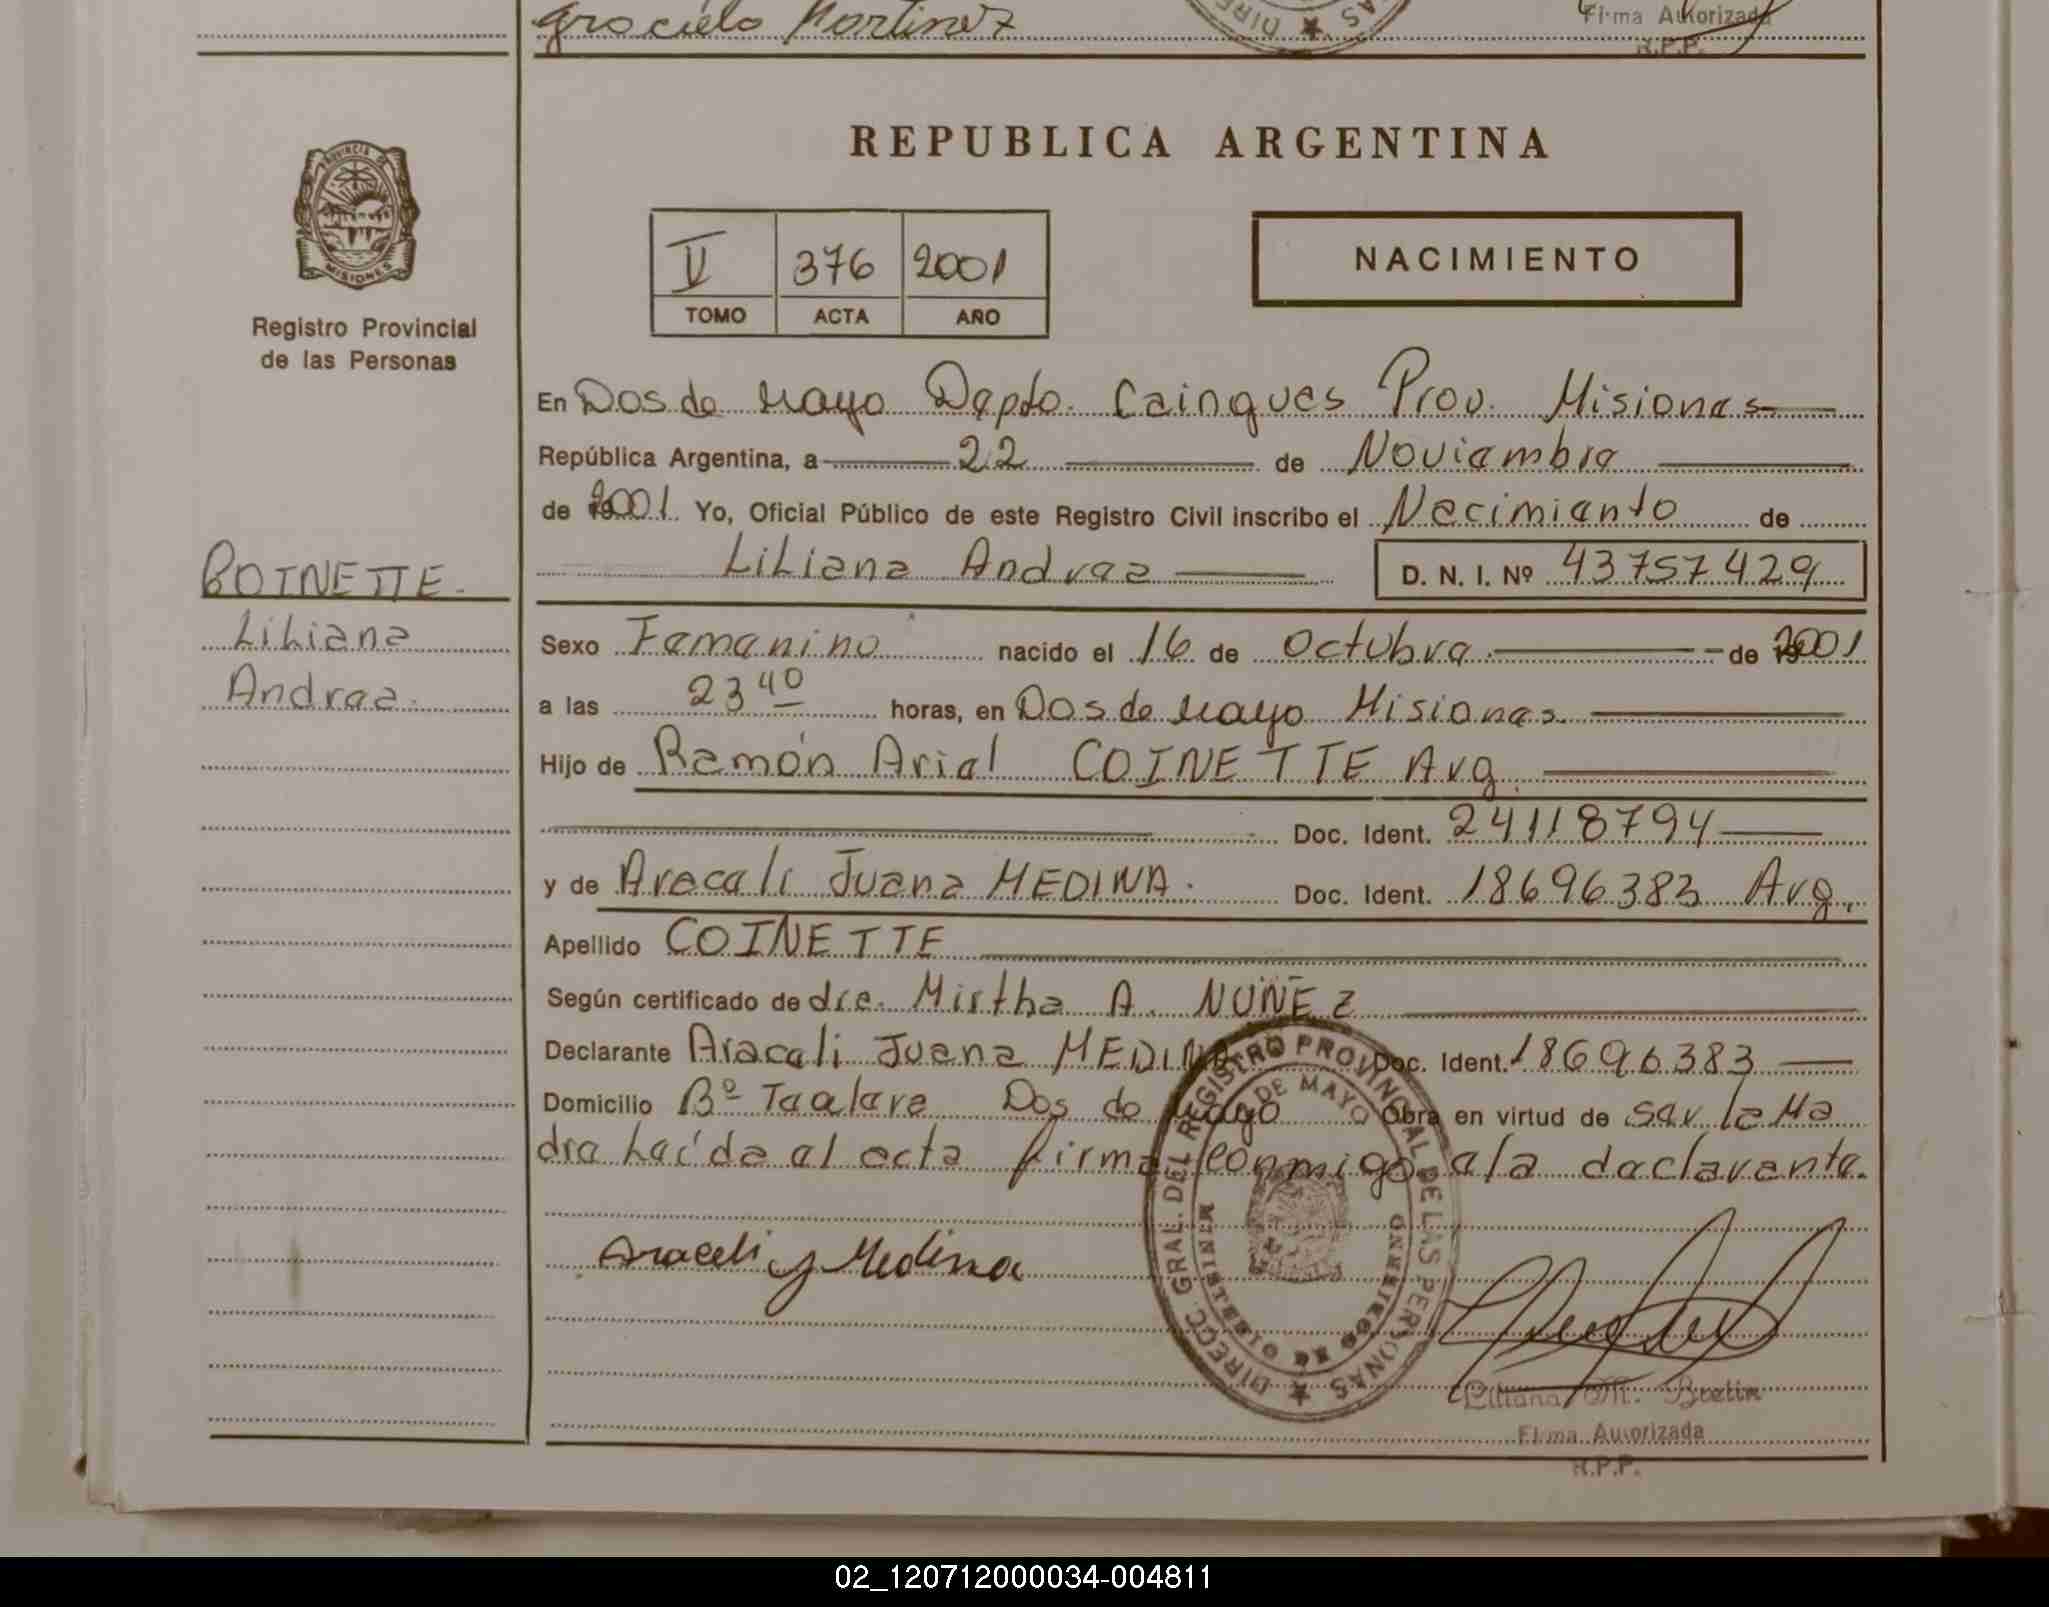 Graciela Martinez
Firma Autorizada
R.P.P.
REPUBLICA ARGENTINA
PROVINCIA DE
MISIONES
Registro Provincial
de las Personas
V 376 2001
TOMO ACTA AÑO
NACIMIENTO
En Dos de Mayo Depto. Cainguas Prov. Misiones
República Argentina, a 22 de Noviembre
de 2001 Yo, Oficial Público de este Registro Civil inscribo el Nacimiento de
Liliana Andrea D. N. I. Nº 43757429
COINETTE.
Liliana
Andrea.
Sexo Femenino nacido el 16 de Octubre de 2001
a las 23 40 horas, en Dos de Mayo Misiones
Hijo de Ramón Ariel COINETTE Arg.
Doc. Ident. 24118794
y de Araceli Juana MEDINA. Doc. Ident. 18696383 Arg.
Apellido COINETTE
Según certificado de dra. Mirtha A. NUÑEZ
Declarante Araceli Juana MEDINA Doc. Ident. 18696383
Domicilio Bº Tealera Dos de Mayo Obra en virtud de ser la Ma
dre Leída el acta firma conmigo ela declarante.
Araceli J Medina
DIRECC. GRAL. DEL REGISTRO PROVINCIAL DE LAS PERSONAS
DE MAYO
Liliana M. Bretin
Firma Autorizada
R.P.P.
02_120712000034-004811